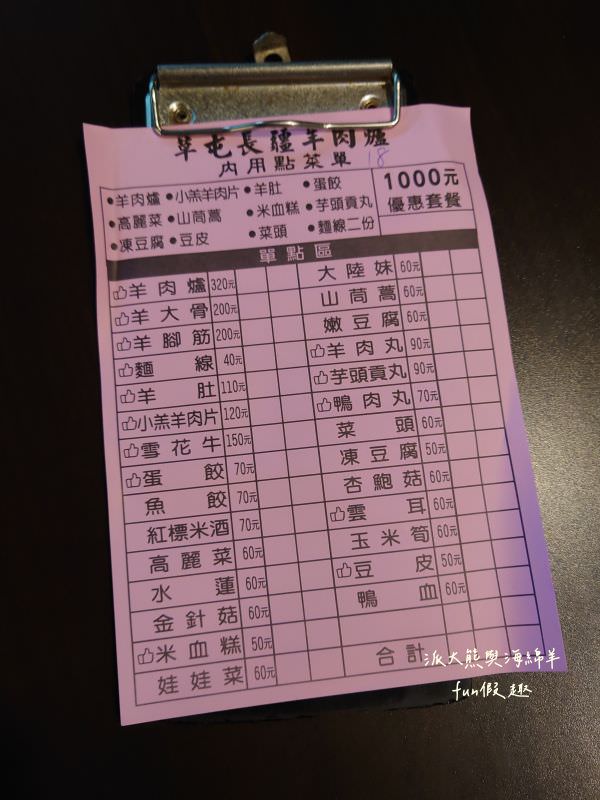 草屯長疆羊肉爐
內用點菜單 18
●羊肉爐 ●小羔羊肉片 ●羊肚 ●蛋餃
●高麗菜 ●山茼蒿 ●米血糕 ●芋頭貢丸
●凍豆腐 ●豆皮 ●菜頭 ●麵線二份
1000元
優惠套餐
單點區
羊肉爐 320元
羊大骨 200元
羊腳筋 200元
麵線 40元
羊肚 110元
小羔羊肉片 120元
雪花牛 150元
蛋餃 70元
魚餃 70元
紅標米酒 70元
高麗菜 60元
水蓮 60元
金針菇 60元
米血糕 50元
娃娃菜 60元
大陸妹 60元
山茼蒿 60元
嫩豆腐 60元
羊肉丸 90元
芋頭貢丸 90元
鴨肉丸 70元
菜頭 60元
凍豆腐 50元
杏鮑菇 60元
雲耳 60元
玉米筍 60元
豆皮 50元
鴨血 60元
合計
派大熊與海綿羊
fun假趣